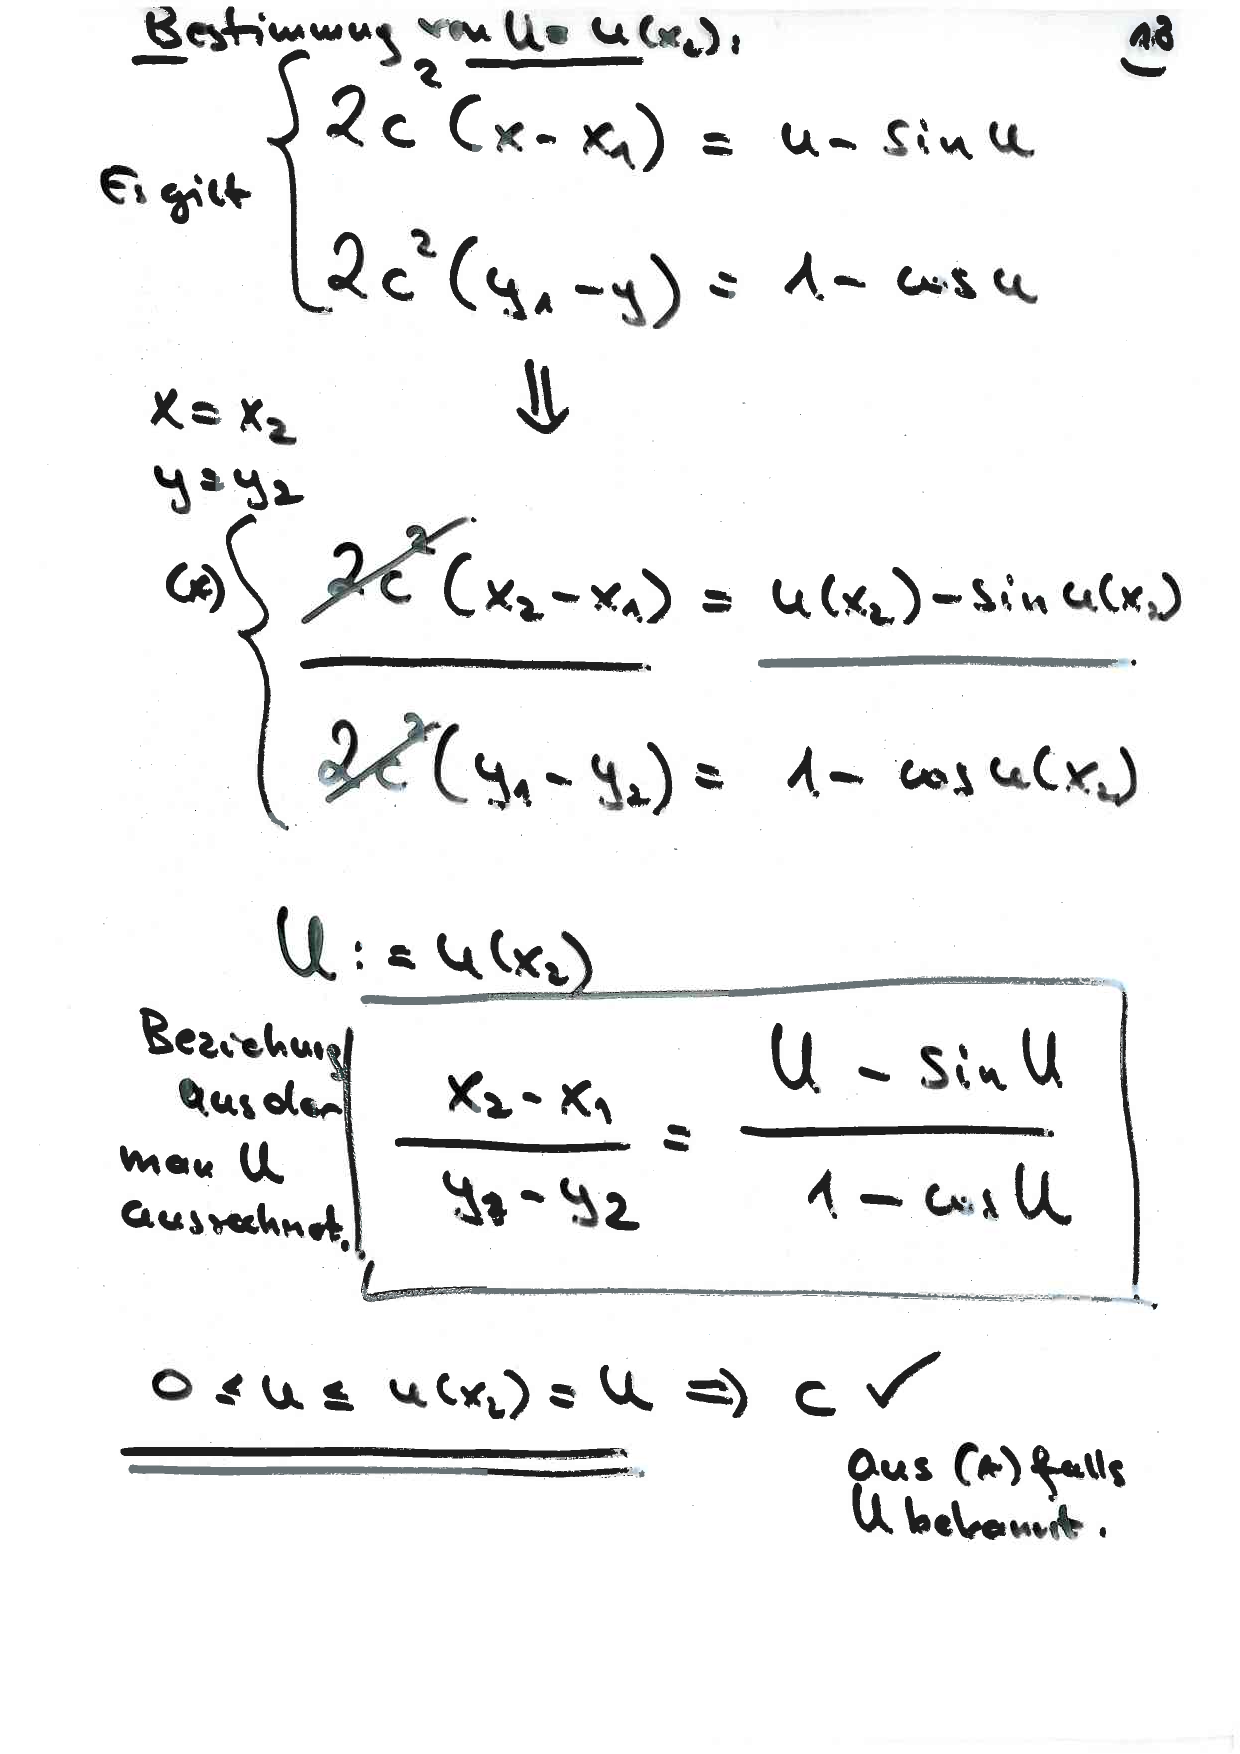 Bestimmung von U = u(x₂):
18
Es gilt
2c²(x - x₁) = u - sin u
2c²(y₁ - y) = 1 - cos u
⇓
x = x₂
y = y₂
(*)
2c²(x₂ - x₁) = u(x₂) - sin u(x₂)
2c²(y₁ - y₂) = 1 - cos u(x₂)
U := u(x₂)
Beziehung
aus der
man U
ausrechnet.
(x₂ - x₁)/(y₁ - y₂) = (U - sin U)/(1 - cos U)
0 ≤ u ≤ u(x₂) = U ⇒ c ✓
aus (*) falls
U bekannt.